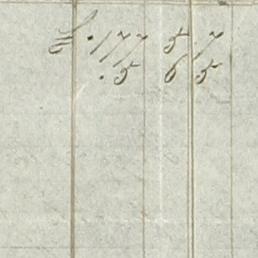 £ . 177 5 7
. 5 6 5